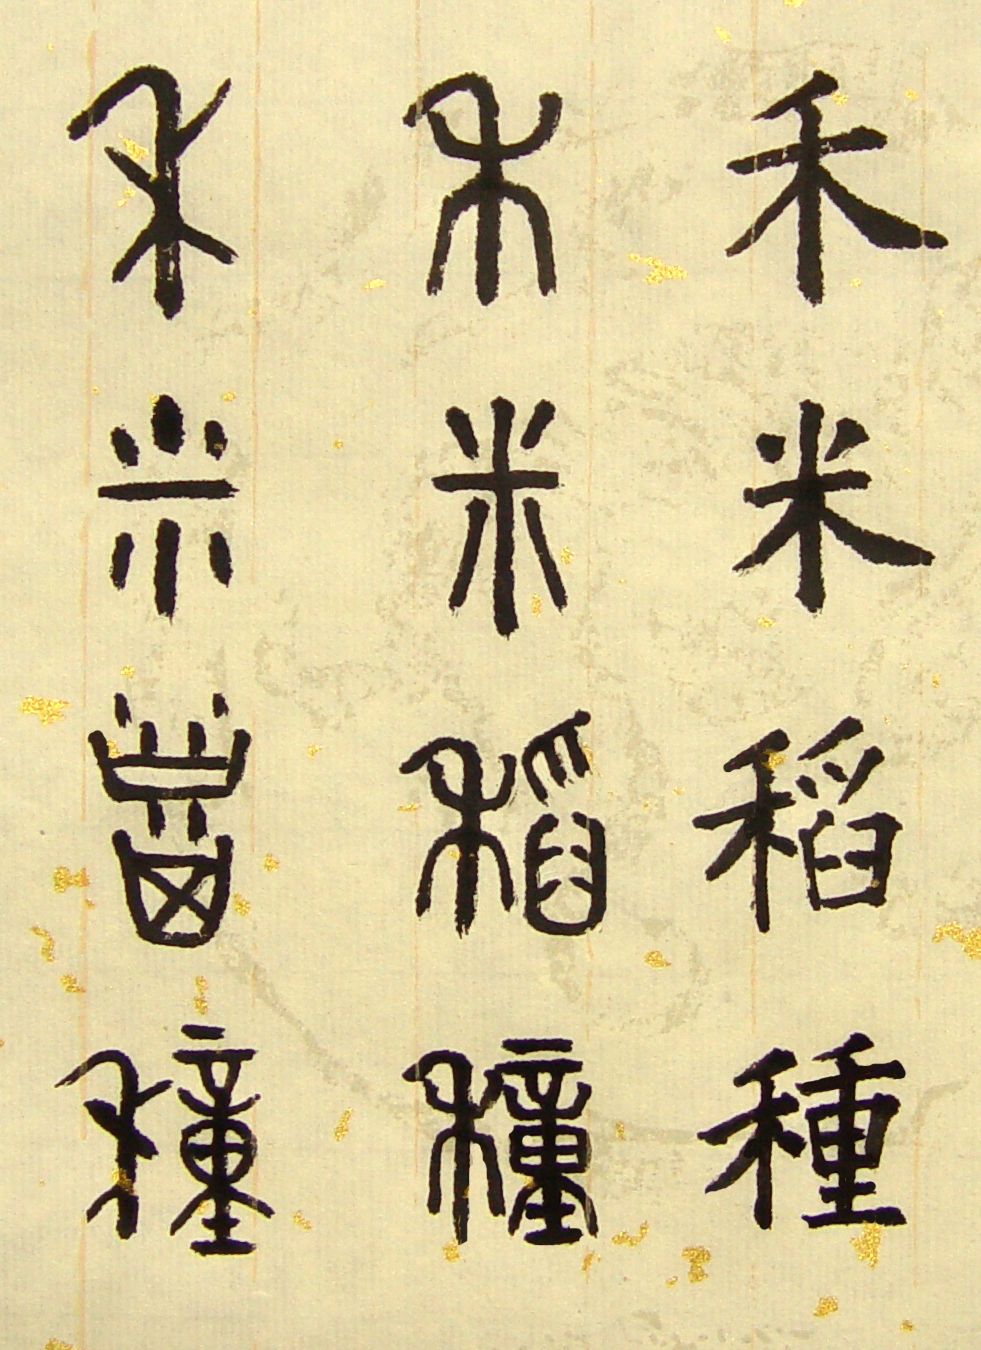 禾米稻種
禾米稻穜
禾米稻穜